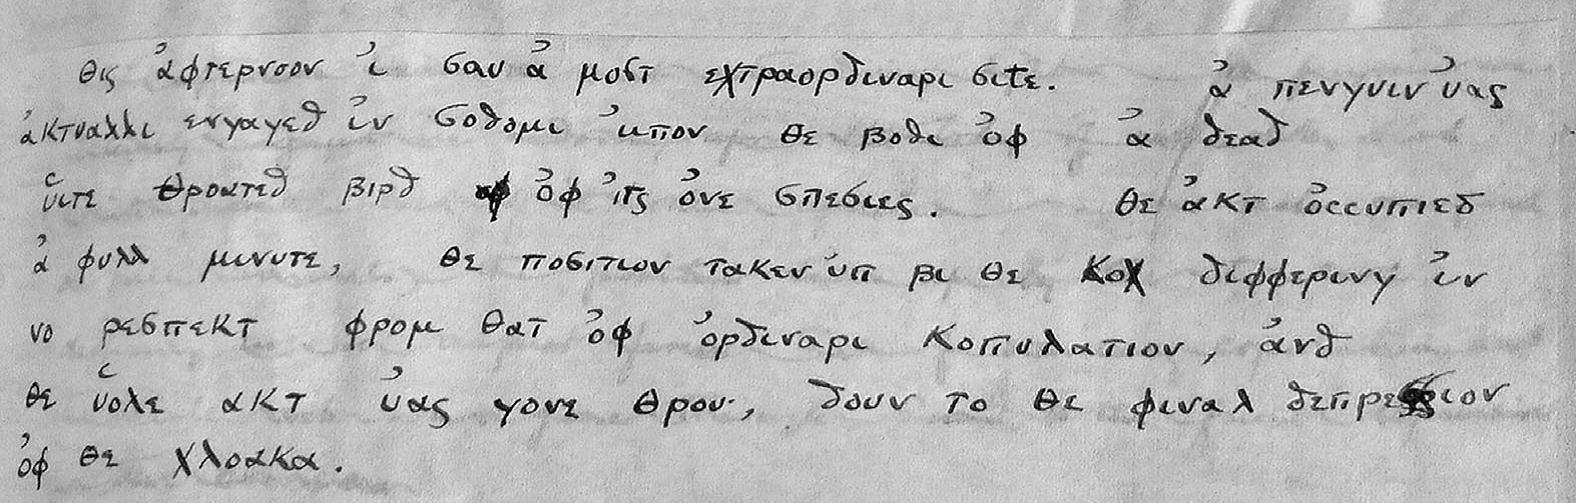 θις ἀφτερνοον ἰ σαυ ἀ μοστ εχτραορδιναρι σιtε. ἀ πενγυιν ὐας
ἀκτυαλλι ενγαγεδ ἰν σοδομι ὐπον θε βοδι ὀφ ἀ δεαδ
ὑιτε θροατεδ βιρδ ὀφ ἰτς ὀνε σπεσιες. θε ἀκτ ὀccυπιεδ
ἀ φυλλ μινυτε, θε ποσιτιον τακεν ὐπ βι θε κοχ διφφερινγ ἰν
νο ρεσπεκτ φρομ θατ ὀφ ὀρδιναρι κοπυλατιον, ἀνδ
θε ὑολε ακτ ὐας γονε θρου, δουν το θε φιναλ δεπρεσσιον
ὀφ θε χλοακα.